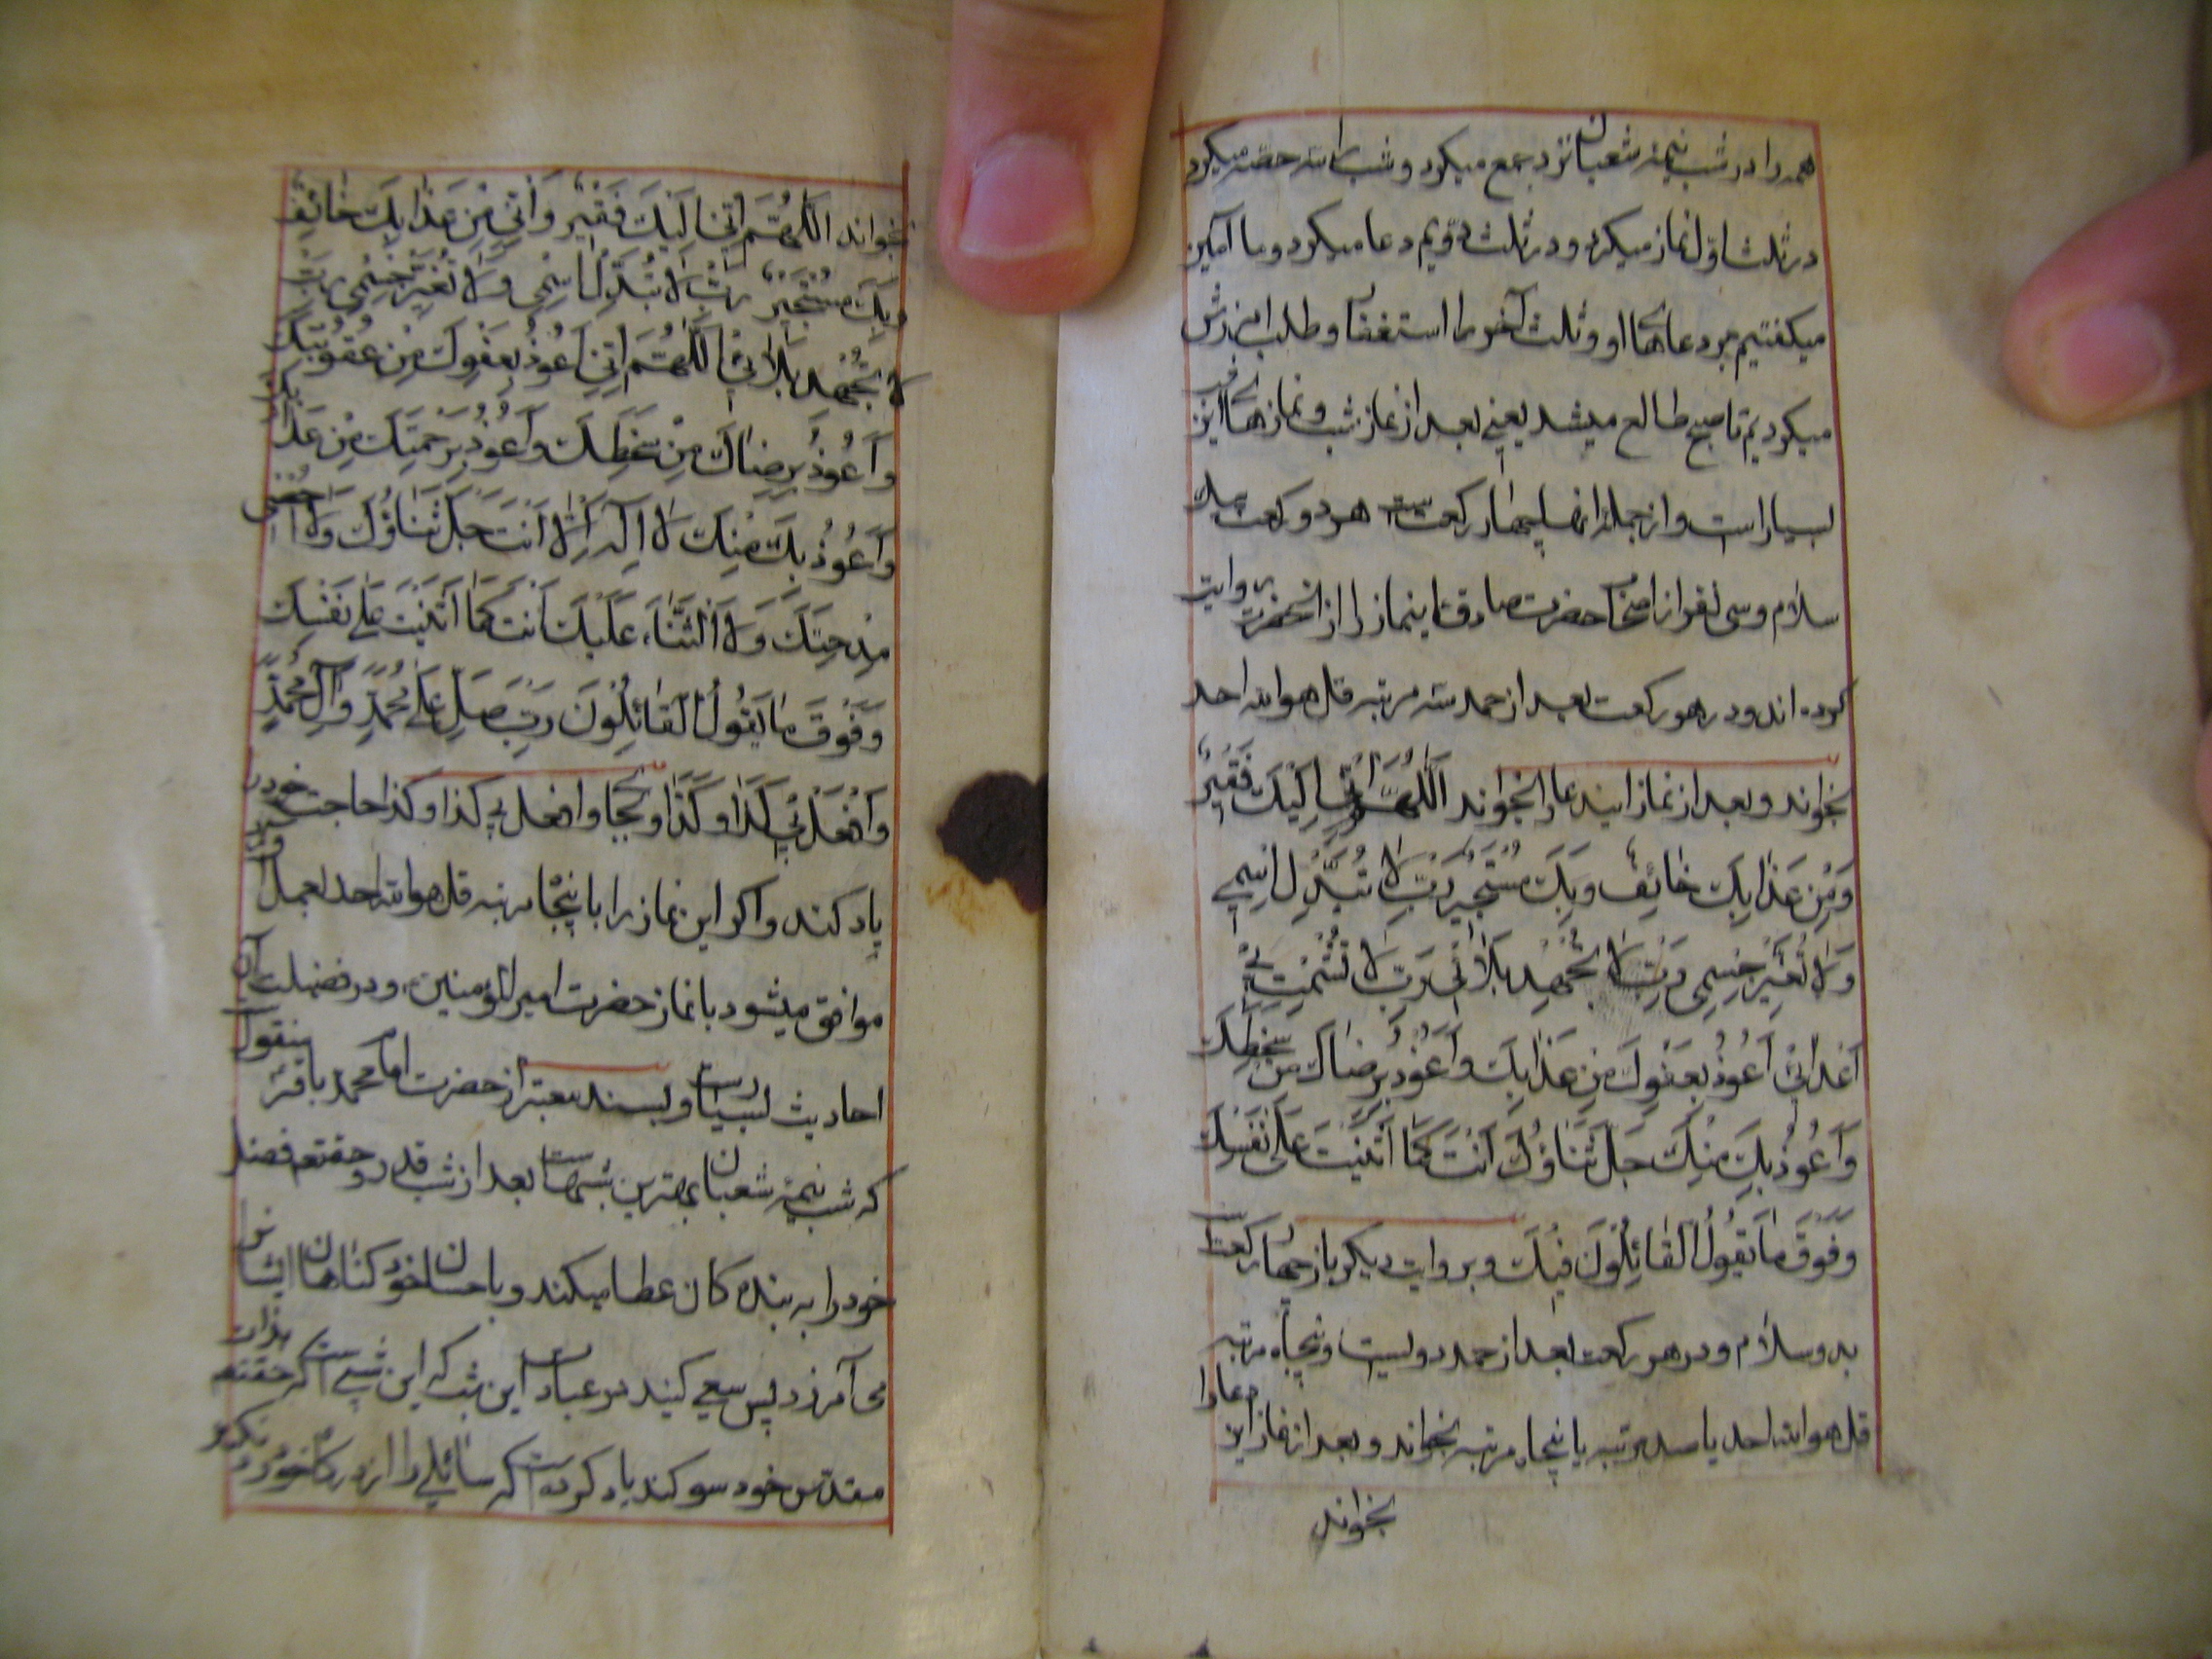 همه را در شب نیمه شعبان نزد جمع میکرد و شب را سه حصّه میکرد
در ثلث اوّل نماز میکرد و در ثلث دویّم دعا میکرد و ما آمین
میکفتیم بر دعاهای او و ثلث آخر ما استغفار و طلب امرزش
میکردیم تا صبح طالع میشد یعنی بعد از نماز شب و نمازهای این شب
بسیار است و از جمله انها چهار رکعت است هر دو رکعت بیک
سلام و سی نفر از اصحاب حضرت صادق ع اینماز را از انحضرت روایت
کرده اند و در هر رکعت بعد از حمد سه مرتبه قل هو الله احد
بخواند و بعد از نماز ایندعا را بخواند اَللّهُمَّ اِنّی اِلَیْکَ فَقیرٌ
وَمِنْ عَذابِکَ خائِفٌ وَبِکَ مُسْتَجیرٌ رَبِّ لا تُبَدِّلْ اِسْمی
وَلا تُغَیِّرْ جِسْمی رَبِّ لا تُجْهِدْ بَلائی رَبِّ لا تُشْمِتْ بی
اَعْدائی اَعُوذُ بِعَفْوِکَ مِنْ عَذابِکَ وَاَعُوذُ بِرِضاکَ مِنْ سَخَطِکَ
وَاَعُوذُ بِکَ مِنْکَ جَلَّ ثَناؤُکَ اَنْتَ کَما اَثْنَیْتَ عَلی نَفْسِکَ
وَفَوْقَ ما یَقُولُ الْقائِلُونَ فیکَ و بروایت دیکر باز چهار رکعت
بدو سلام و در هر رکعت بعد از حمد دویست و پنجاه مرتبه
قل هو الله احد یا صد مرتبه یا پنجاه مرتبه بخواند و بعد از نماز این دعا را
بخواند
بخواند اَللّهُمَّ اِنّی اِلَیْکَ فَقیرٌ وَاِنّی مِنْ عَذابِکَ خائِفٌ
وَبِکَ مُسْتَجیرٌ رَبِّ لا تُبَدِّلْ اِسْمی وَلا تُغَیِّرْ جِسْمی رَبِّ
لا تُجْهِدْ بَلائی اَللّهُمَّ اِنّی اَعُوذُ بِعَفْوِکَ مِنْ عُقُوبَتِکَ
وَاَعُوذُ بِرِضاکَ مِنْ سَخَطِکَ وَاَعُوذُ بِرَحْمَتِکَ مِنْ عَذابِکَ
وَاَعُوذُ بِکَ مِنْکَ لا اِلهَ اِلّا اَنْتَ جَلَّ ثَناؤُکَ وَلا اُحْصی
مِدْحَتَکَ وَلا الثَّناءَ عَلَیْکَ اَنْتَ کَما اَثْنَیْتَ عَلی نَفْسِکَ
وَفَوْقَ ما یَقُولُ الْقائِلُونَ رَبِّ صَلِّ عَلی مُحَمَّدٍ وَآلِ مُحَمَّدٍ
وَافْعَلْ بی کَذا وَکَذا و بجای وافعل بی کذا و کذا حاجت خود را
یاد کند و اکر این نماز را با پنجاه مرتبه قل هو الله احد بعمل آورد
موافق میشود با نماز حضرت امیر المؤمنین ع و در فضیلت آن
احادیث بسیار است و بسند معتبر از حضرت امام محمد باقر ع منقول
که شب نیمه شعبان بهترین شبهاست بعد از شب قدر و حقتعم فضل
خود را به بنده کان عطا میکند و باحسان خود کناهان ایشان
می آمرزد پس سعی کنید در عبادت این شب که این شبی است که حقتعم بذات
مقدس خود سوکند یاد کرده است که سائلی را از درکاه خود رد نکند